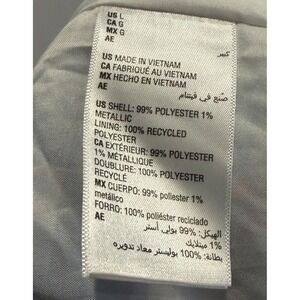 US L
CA G
MX G
AE كبير
US MADE IN VIETNAM
CA FABRIQUÉ AU VIETNAM
MX HECHO EN VIETNAM
AE صُنع في فيتنام
US SHELL: 99% POLYESTER 1%
METALLIC
LINING: 100% RECYCLED
POLYESTER
CA EXTÉRIEUR: 99% POLYESTER
1% MÉTALLIQUE
DOUBLURE: 100% POLYESTER
RECYCLÉ
MX CUERPO: 99% poliester 1%
metálico
FORRO: 100% poliéster reciclado
AE
الهيكل: 99% بولي أستر
1% ميتالِك
بطانة: 100% بوليستر معاد تدويره